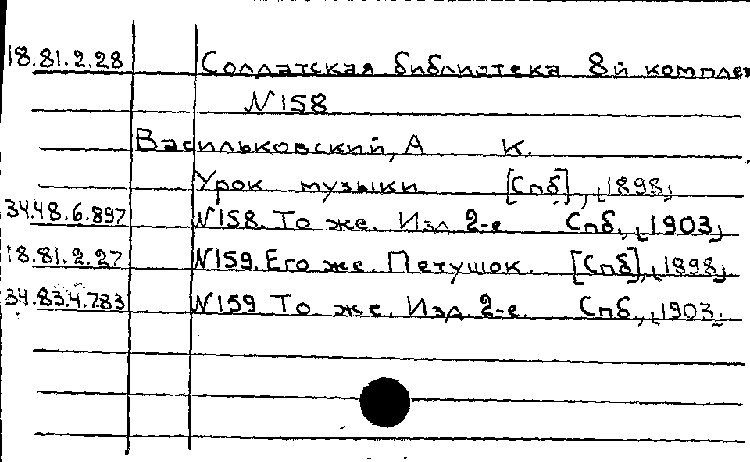 18.81.2.28 Солдатская библиотека 8й комплек
N158
Васильковский, А К.
Урок музыки [Спб], [1898]
34.48.6.897 N158. То же. Изд 2-е Спб., [1903]
18.81.2.27 N159. Его же. Петушок. [Спб], [1898]
34.83.4.783 N159. То же. Изд. 2-е. Спб., [1903].